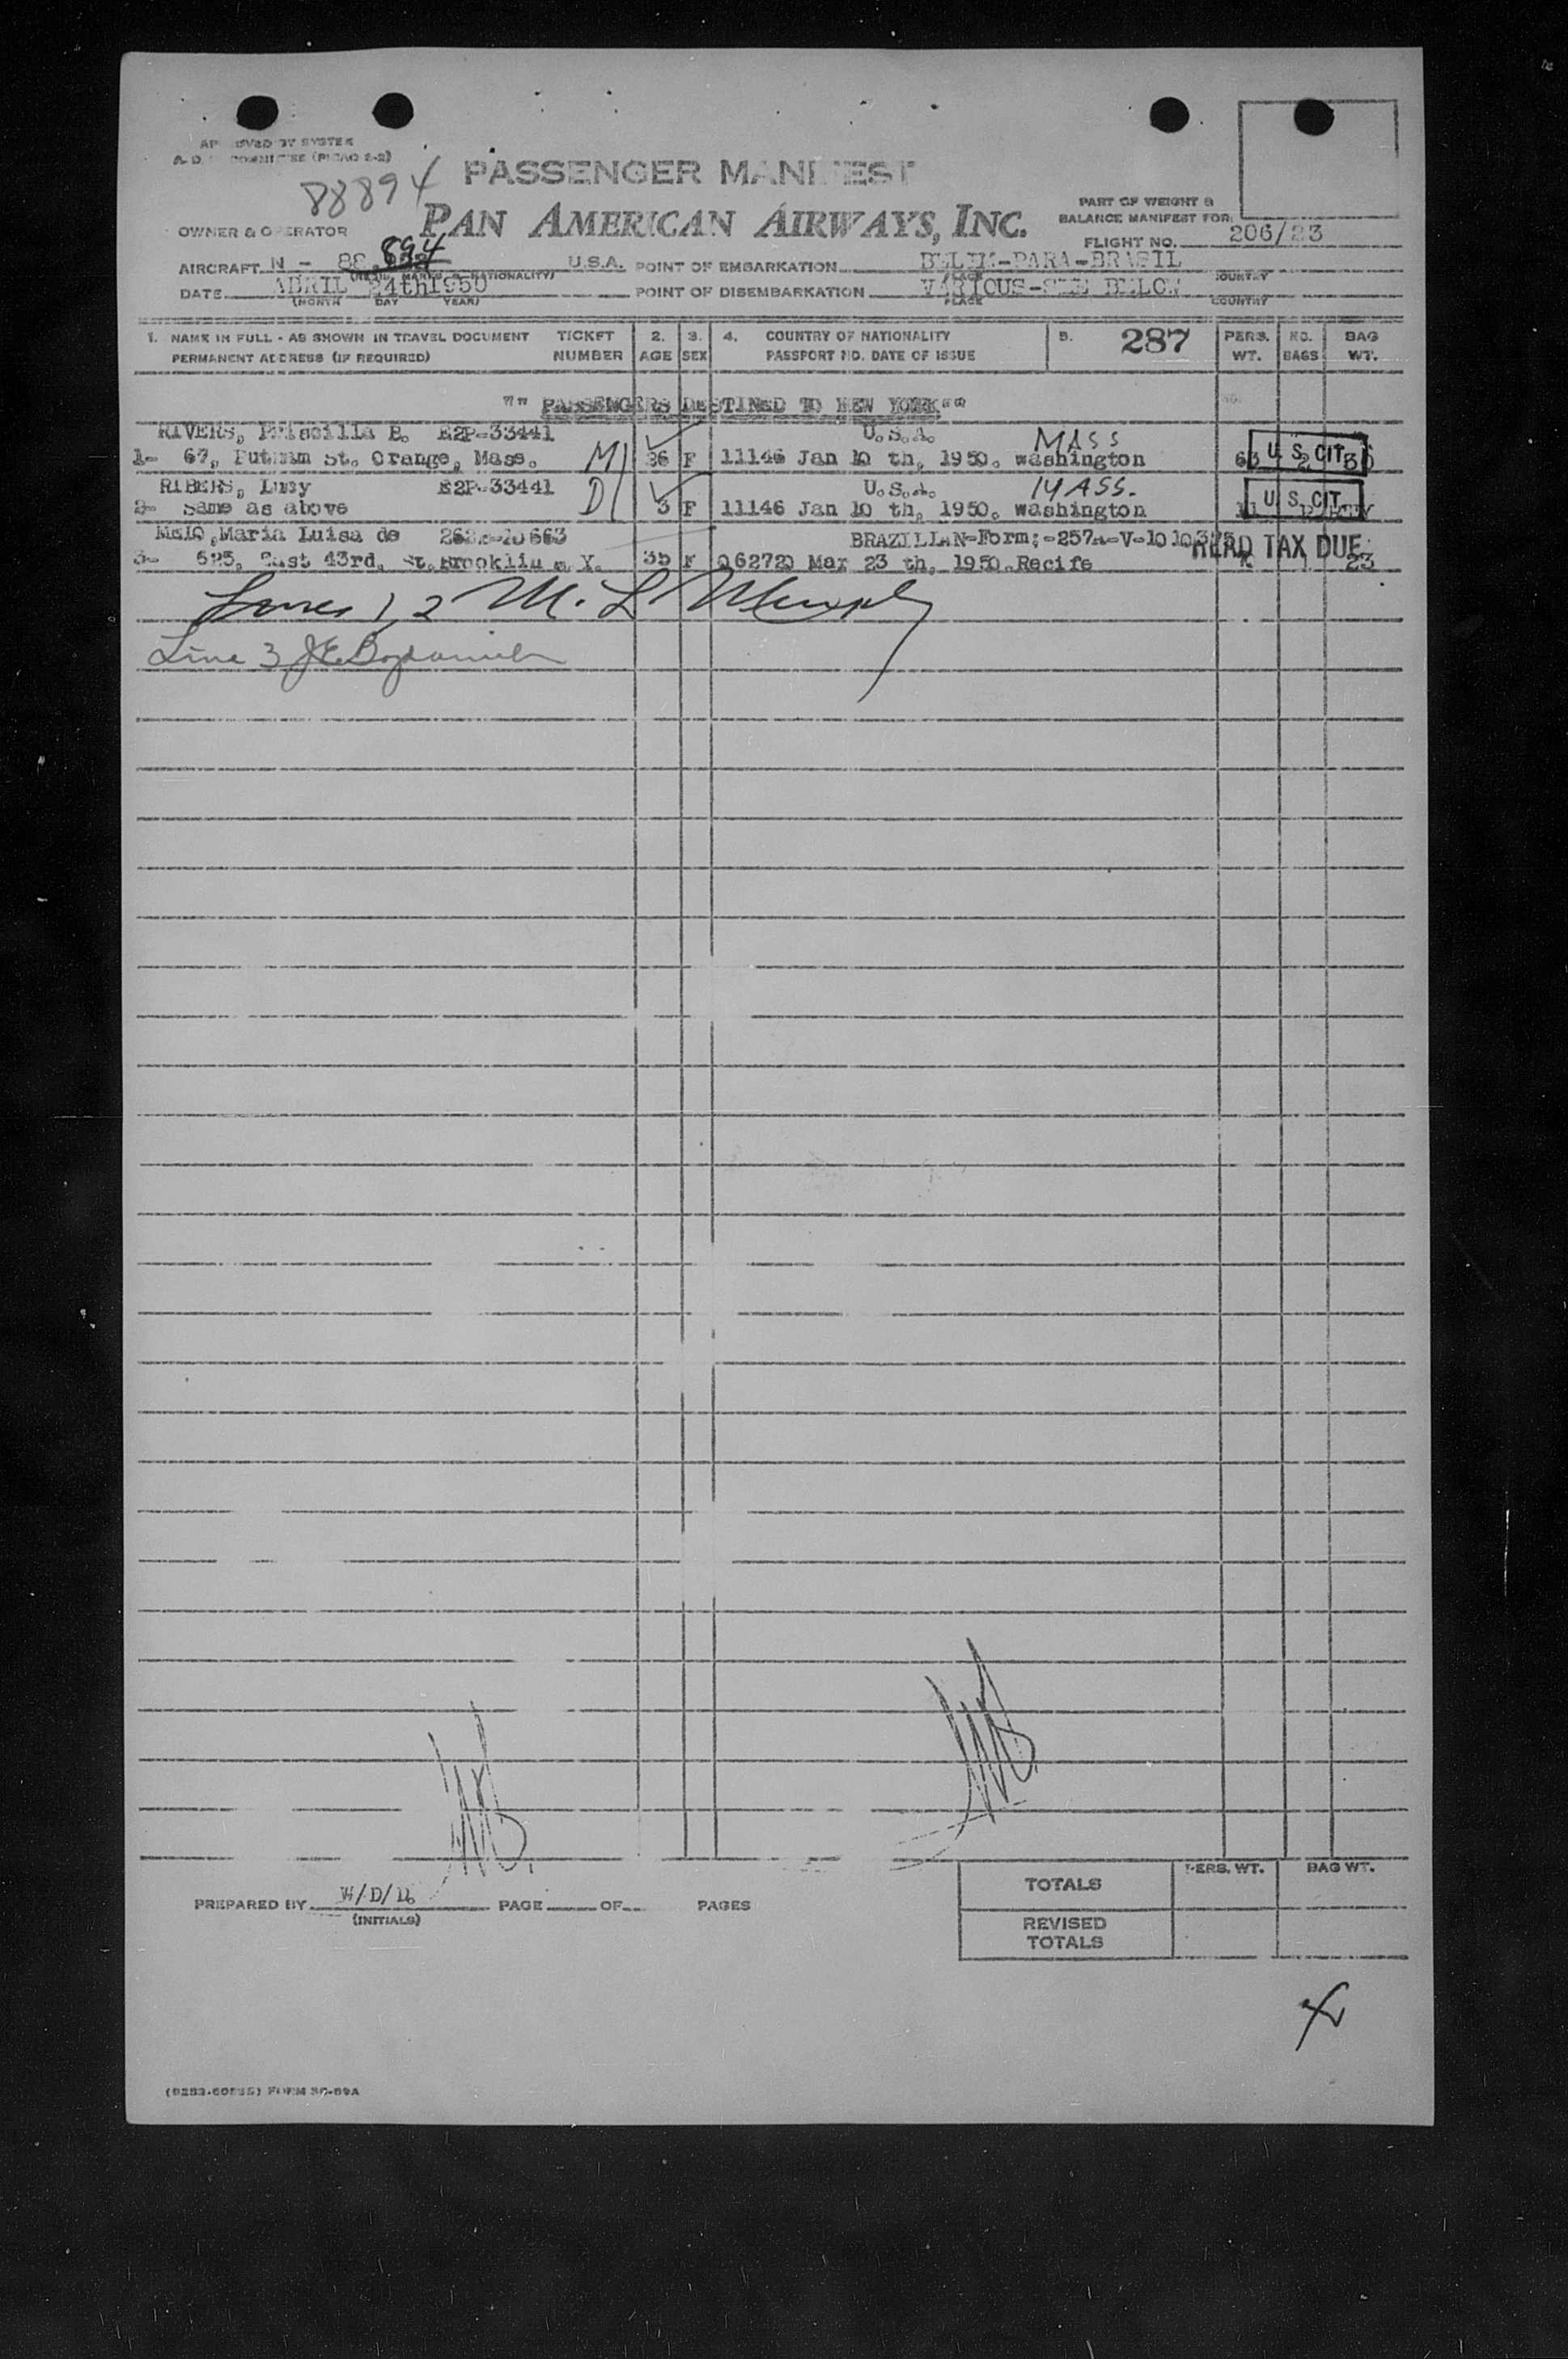 APPROVED BY SYSTEM
COMMITTEE (PICAO 2-2)
88894
PASSENGER MANIFEST
PAN AMERICAN AIRWAYS, INC.
PART OF WEIGHT &
BALANCE MANIFEST FOR
FLIGHT NO. 206/23
OWNER & OPERATOR
AIRCRAFT N - 88 894 U.S.A. POINT OF EMBARKATION BELEM-PARA-BRASIL
PLACE COUNTRY
DATE ABRIL 24th1950 POINT OF DISEMBARKATION VARIOUS-SEE BELOW
(MONTH DAY YEAR) PLACE COUNTRY
1. NAME IN FULL - AS SHOWN IN TRAVEL DOCUMENT TICKET 2. 3. 4. COUNTRY OF NATIONALITY 5. 287 PERS. NO. BAG
PERMANENT ADDRESS (IF REQUIRED) NUMBER AGE SEX PASSPORT NO. DATE OF ISSUE WT. BAGS WT.
"" PASSENGERS DESTINED TO NEW YORK""
RIVERS, Priscilla B. E2P-33441 U.S.A. MASS
1- 67, Putnam St. Orange, Mass. M 36 F 11146 Jan 10 th, 1950. Washington 63 U.S. CIT.
RIBERS, Lucy E2P-33441 U.S.A. MASS.
2- Same as above D 3 F 11146 Jan 10 th, 1950. Washington U.S. CIT.
MelO,Maria Luisa de BRAZILIAN-Form;-257A-V-1010375 HEAD TAX DUE
3- 625, East 43rd, St.Brooklin N. Y. 35 F 062720 Mar 23 th, 1950.Recife 1 23
Lines 1,2 M. L. Murphy
Line 3 J E
PREPARED BY W/D/D. PAGE OF PAGES
(INITIALS)
PERS. WT. BAG WT.
TOTALS
REVISED
TOTALS
FORM